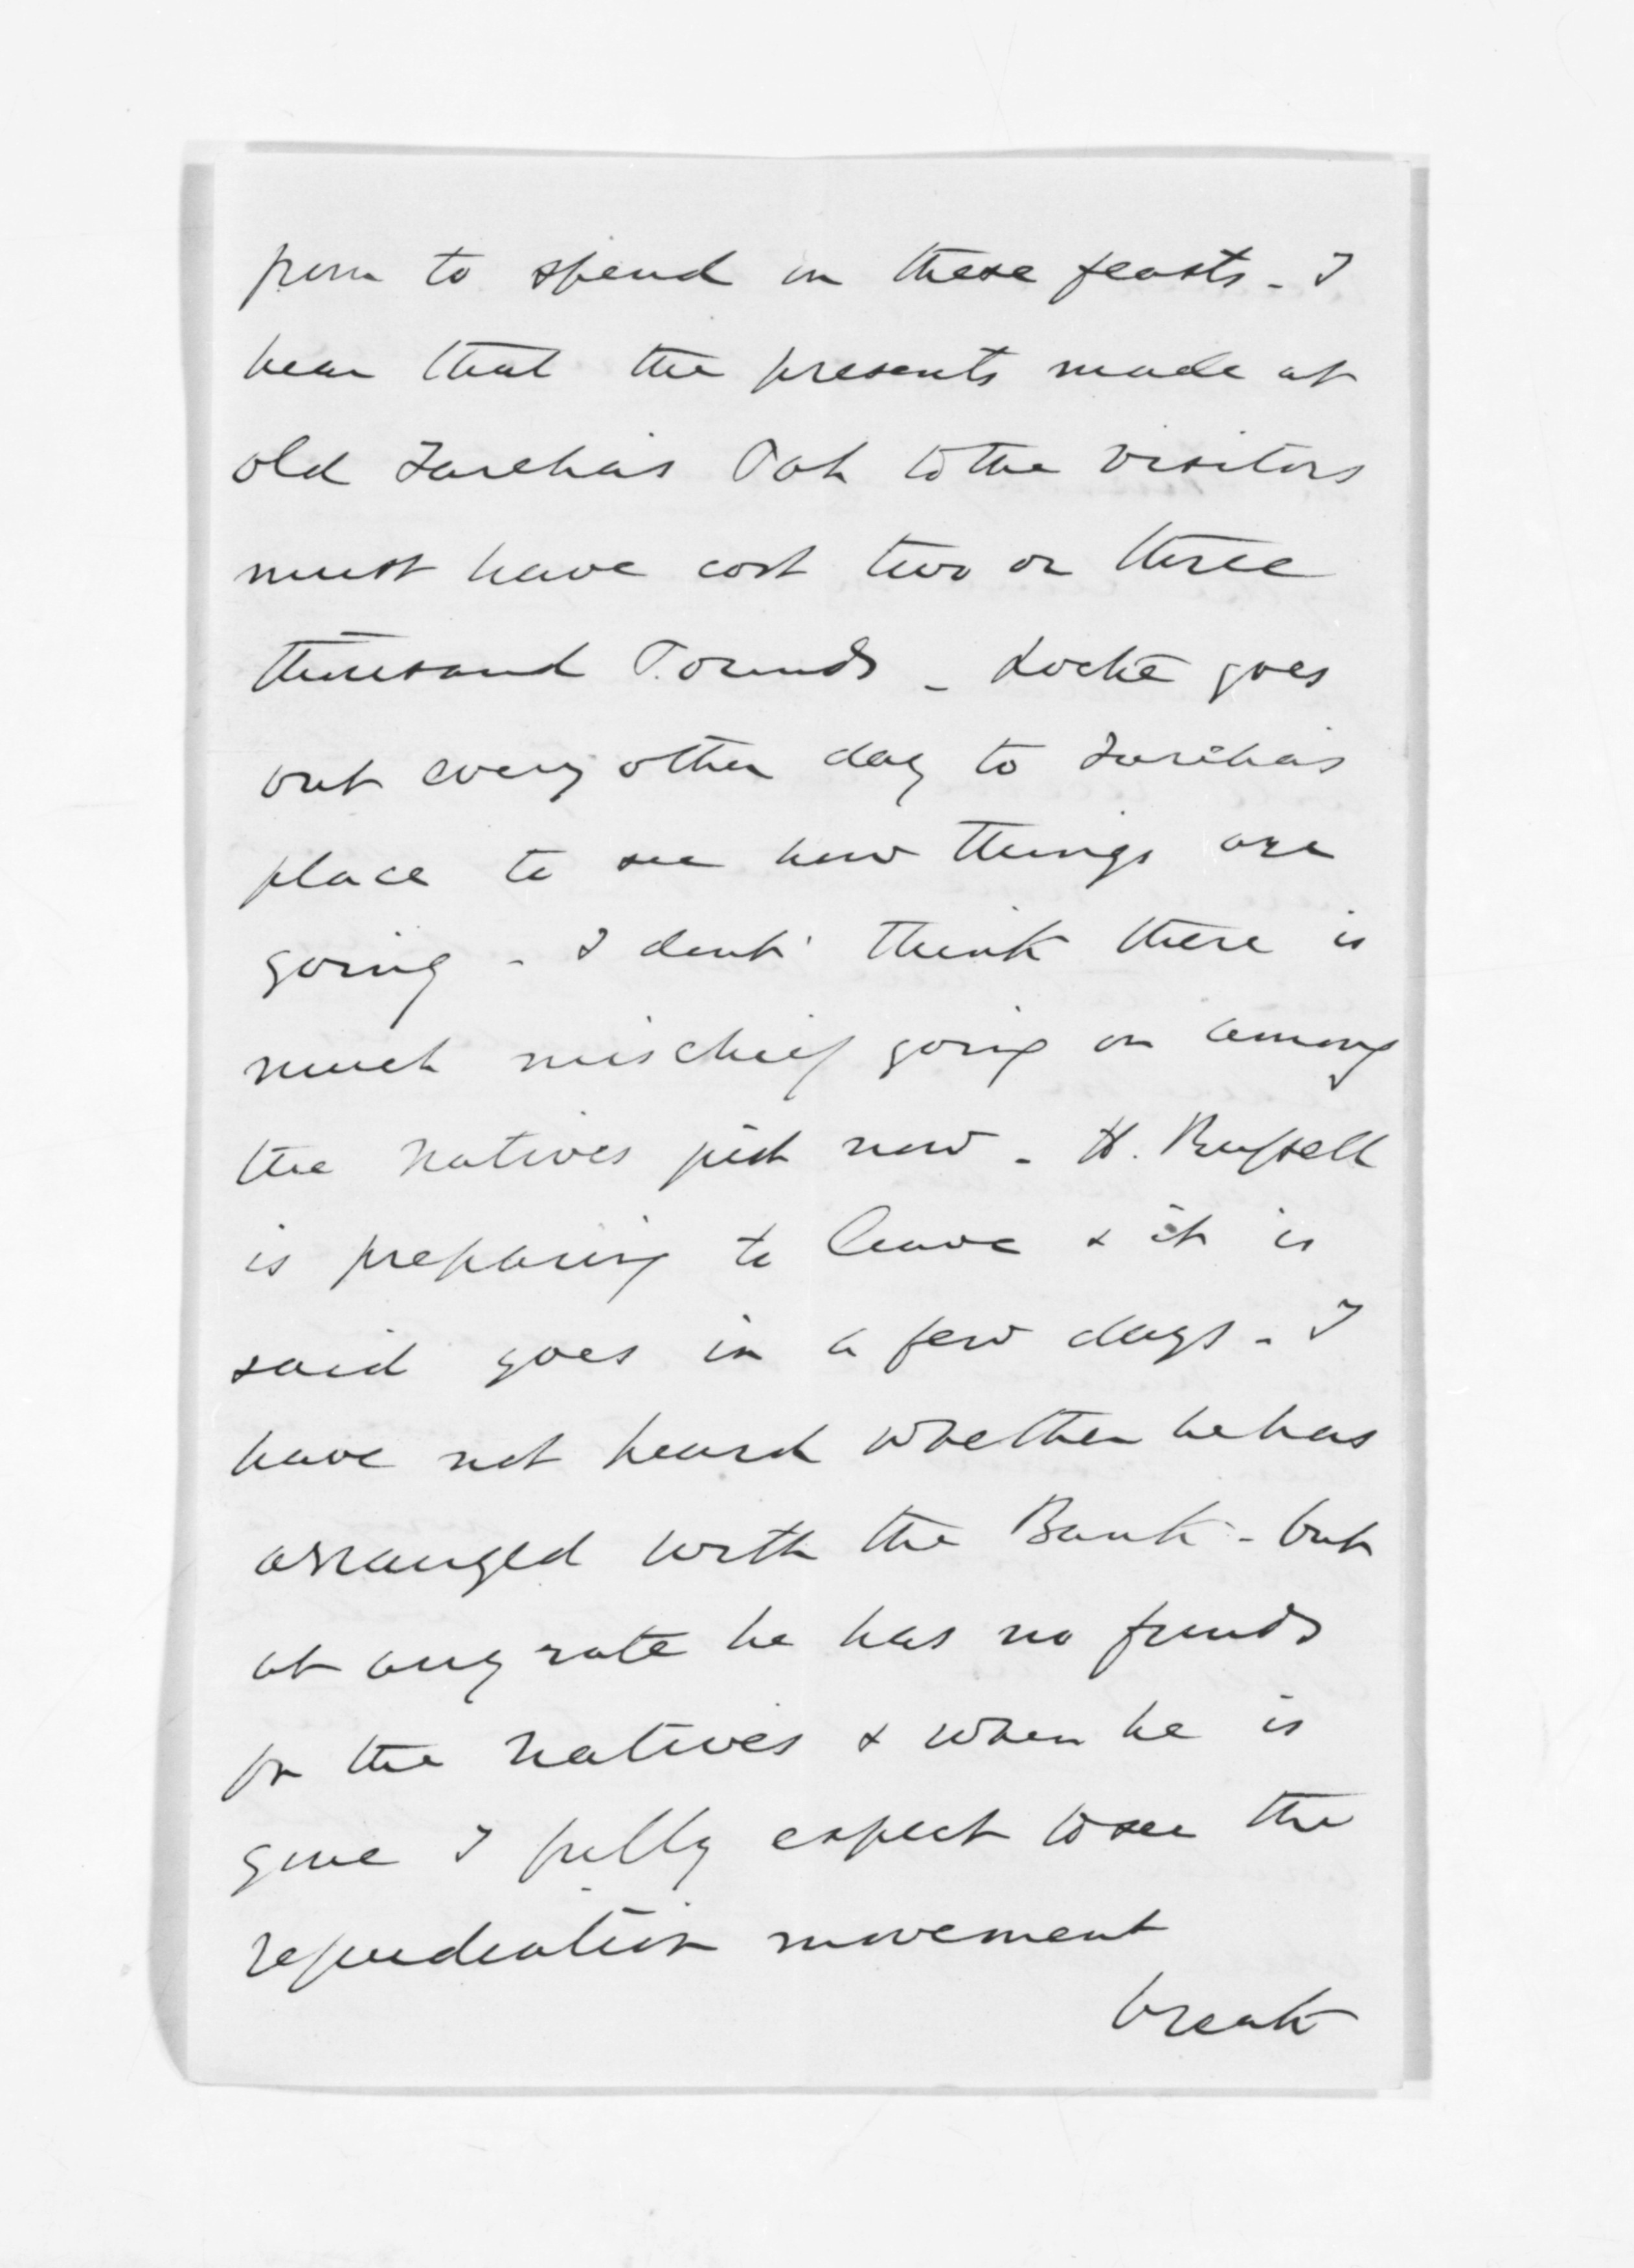 from to spend in these feasts - I
hear that the presents made at
old Tareha's Pah to the visitors
must have cost two or three
thousand Pounds - Locke goes
out every other day to Tareha's
place to see how things are
going - I dont think there is
much mischief going on among
the Natives just now - H. Russell
is preparing to leave & it is
said goes in a few days - I
have not heard whether he has
arranged with the Bank - but
at any rate he has no funds
for the Natives & when he is
gone I fully expect to see the
repudiation movement
break